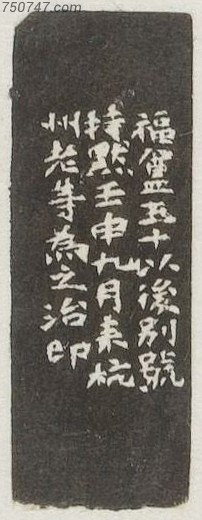 750747.com
福盦五十以後別號
持默壬申九月來杭
州老等為之治印